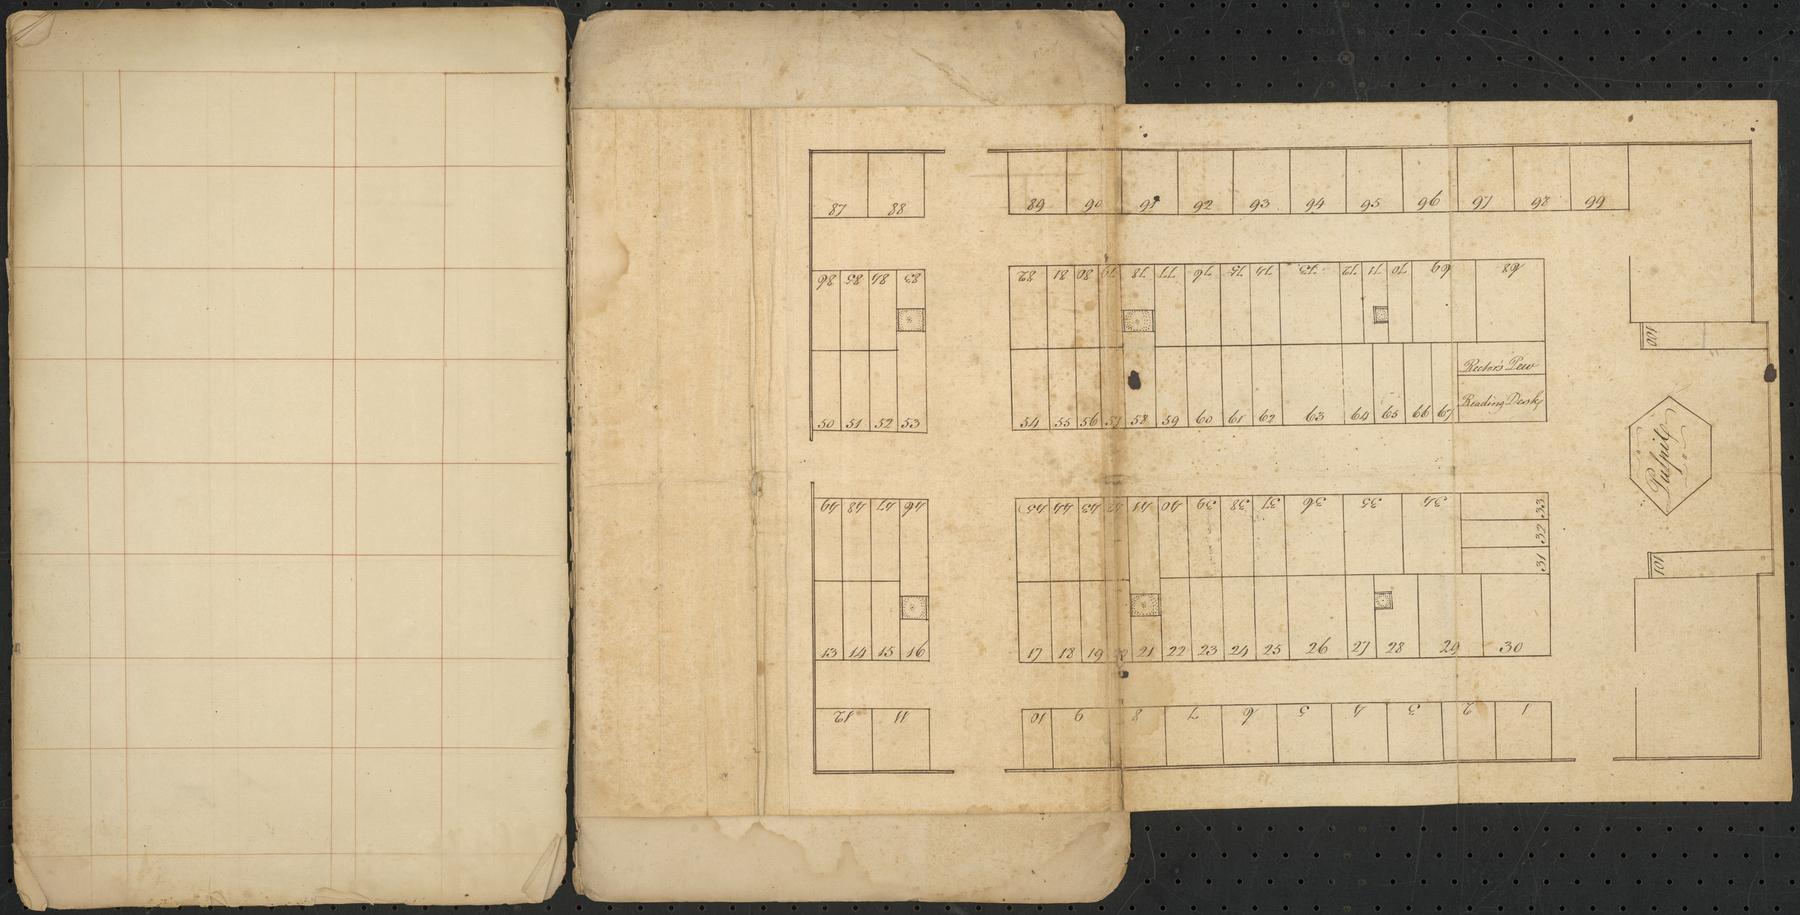 87 88 89 90 91 92 93 94 95 96 97 98 99
86 85 84 83 82 81 80 79 78 77 76 75 74 73 72 71 70 69 68
100
Rector's Pew
Reading Desk
50 51 52 53 54 55 56 57 58 59 60 61 62 63 64 65 66 67
Pulpit
49 48 47 46 45 44 43 42 41 40 39 38 37 36 35 34
33
32
31
101
13 14 15 16 17 18 19 20 21 22 23 24 25 26 27 28 29 30
12 11 10 9 8 7 6 5 4 3 2 1